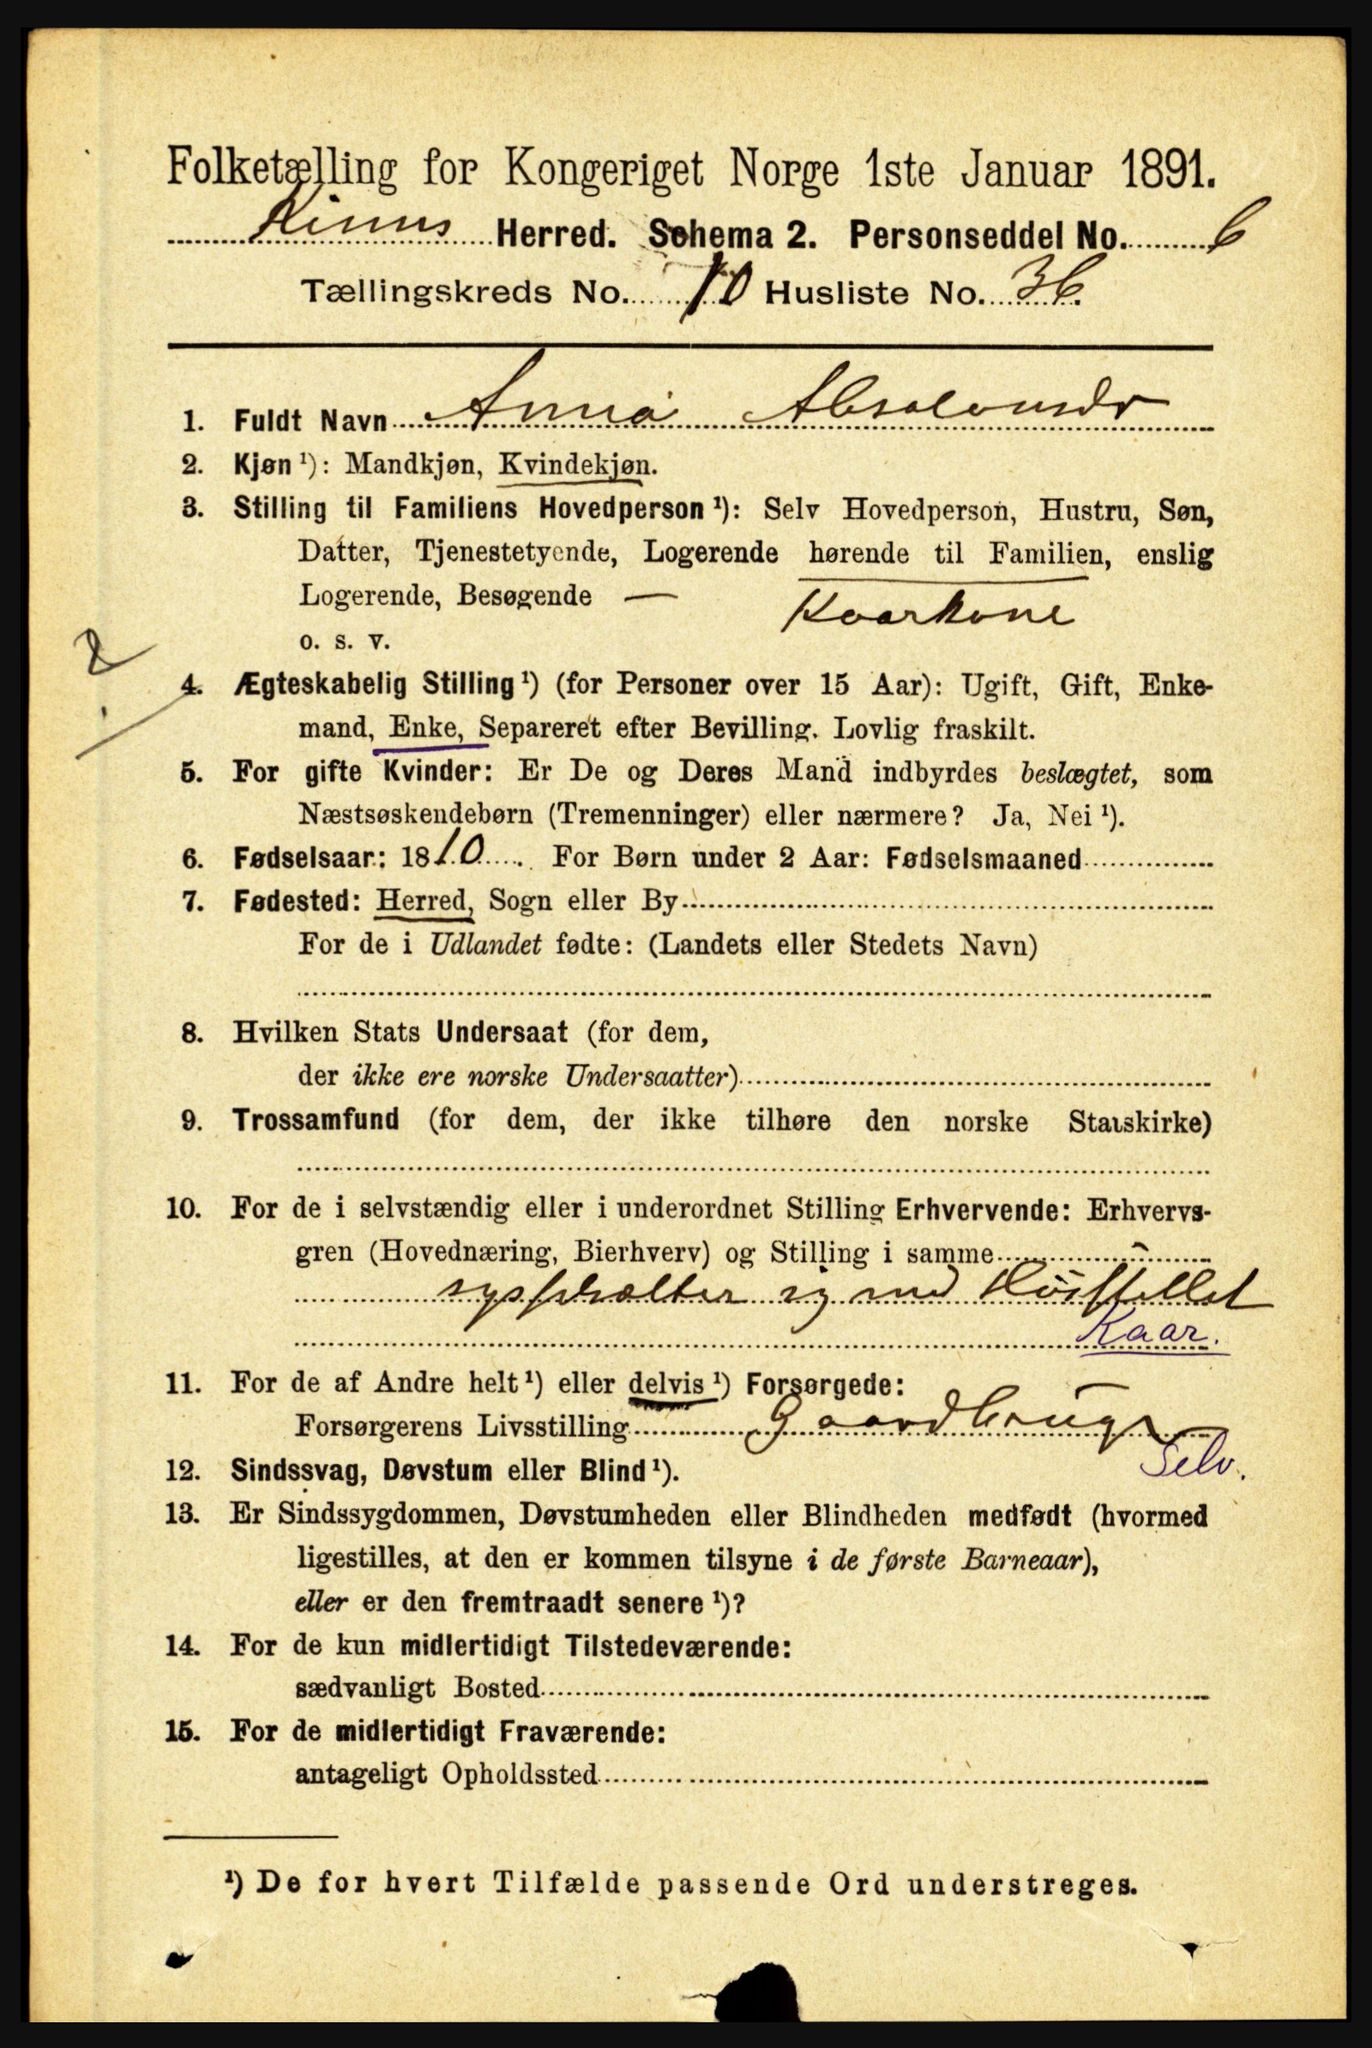 Folketælling for Kongeriget Norge 1ste Januar 1891.
Kinns Herred. Schema 2. Personseddel No. 6
Tællingskreds No. 10 Husliste No. 36.
1. Fuldt Navn Anna Absalonsdr
2. Kjøn ¹): Mandkjøn, Kvindekjøn.
3. Stilling til Familiens Hovedperson ¹): Selv Hovedperson, Hustru, Søn,
Datter, Tjenestetyende, Logerende hørende til Familien, enslig
Logerende, Besøgende — Kaarkone
o. s. v.
4. Ægteskabelig Stilling ¹) (for Personer over 15 Aar): Ugift, Gift, Enke-
mand, Enke, Separeret efter Bevilling. Lovlig fraskilt.
5. For gifte Kvinder: Er De og Deres Mand indbyrdes beslægtet, som
Næstsøskendebørn (Tremenninger) eller nærmere? Ja, Nei ¹).
6. Fødselsaar: 1810. For Børn under 2 Aar: Fødselsmaaned
7. Fødested: Herred, Sogn eller By
For de i Udlandet fødte: (Landets eller Stedets Navn)
8. Hvilken Stats Undersaat (for dem,
der ikke ere norske Undersaatter)
9. Trossamfund (for dem, der ikke tilhøre den norske Statskirke)
10. For de i selvstændig eller i underordnet Stilling Erhvervende: Erhvervs-
gren (Hovednæring, Bierhverv) og Stilling i samme
sysselsætter sig med Huusstellet
Kaar.
11. For de af Andre helt ¹) eller delvis ¹) Forsørgede:
Forsørgerens Livsstilling Gaardbruger
Selv.
12. Sindssvag, Døvstum eller Blind ¹).
13. Er Sindssygdommen, Døvstumheden eller Blindheden medfødt (hvormed
ligestilles, at den er kommen tilsyne i de første Barneaar),
eller er den fremtraadt senere ¹)?
14. For de kun midlertidigt Tilstedeværende:
sædvanligt Bosted
15. For de midlertidigt Fraværende:
antageligt Opholdssted
¹) De for hvert Tilfælde passende Ord understreges.